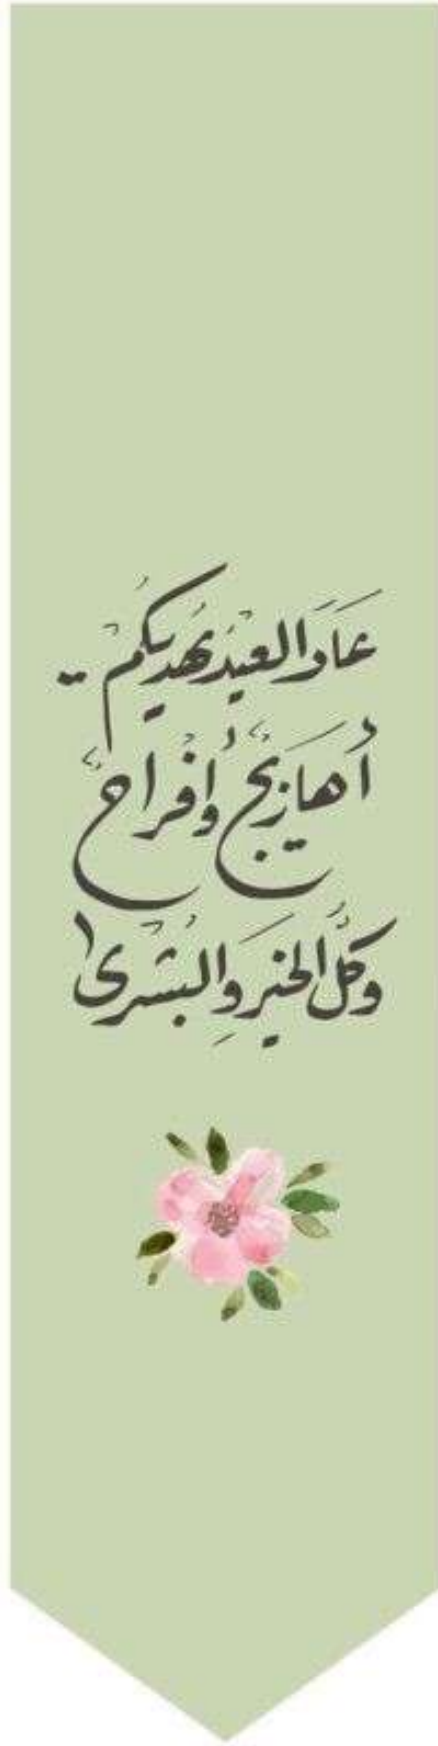 عَادَ العِيْدُ يُهْدِيكُمْ ..
أَهَازِيْجٌ وَأَفْرَاحٌ
وَكُلَّ الخَيْرِ وَالبُشْرَى